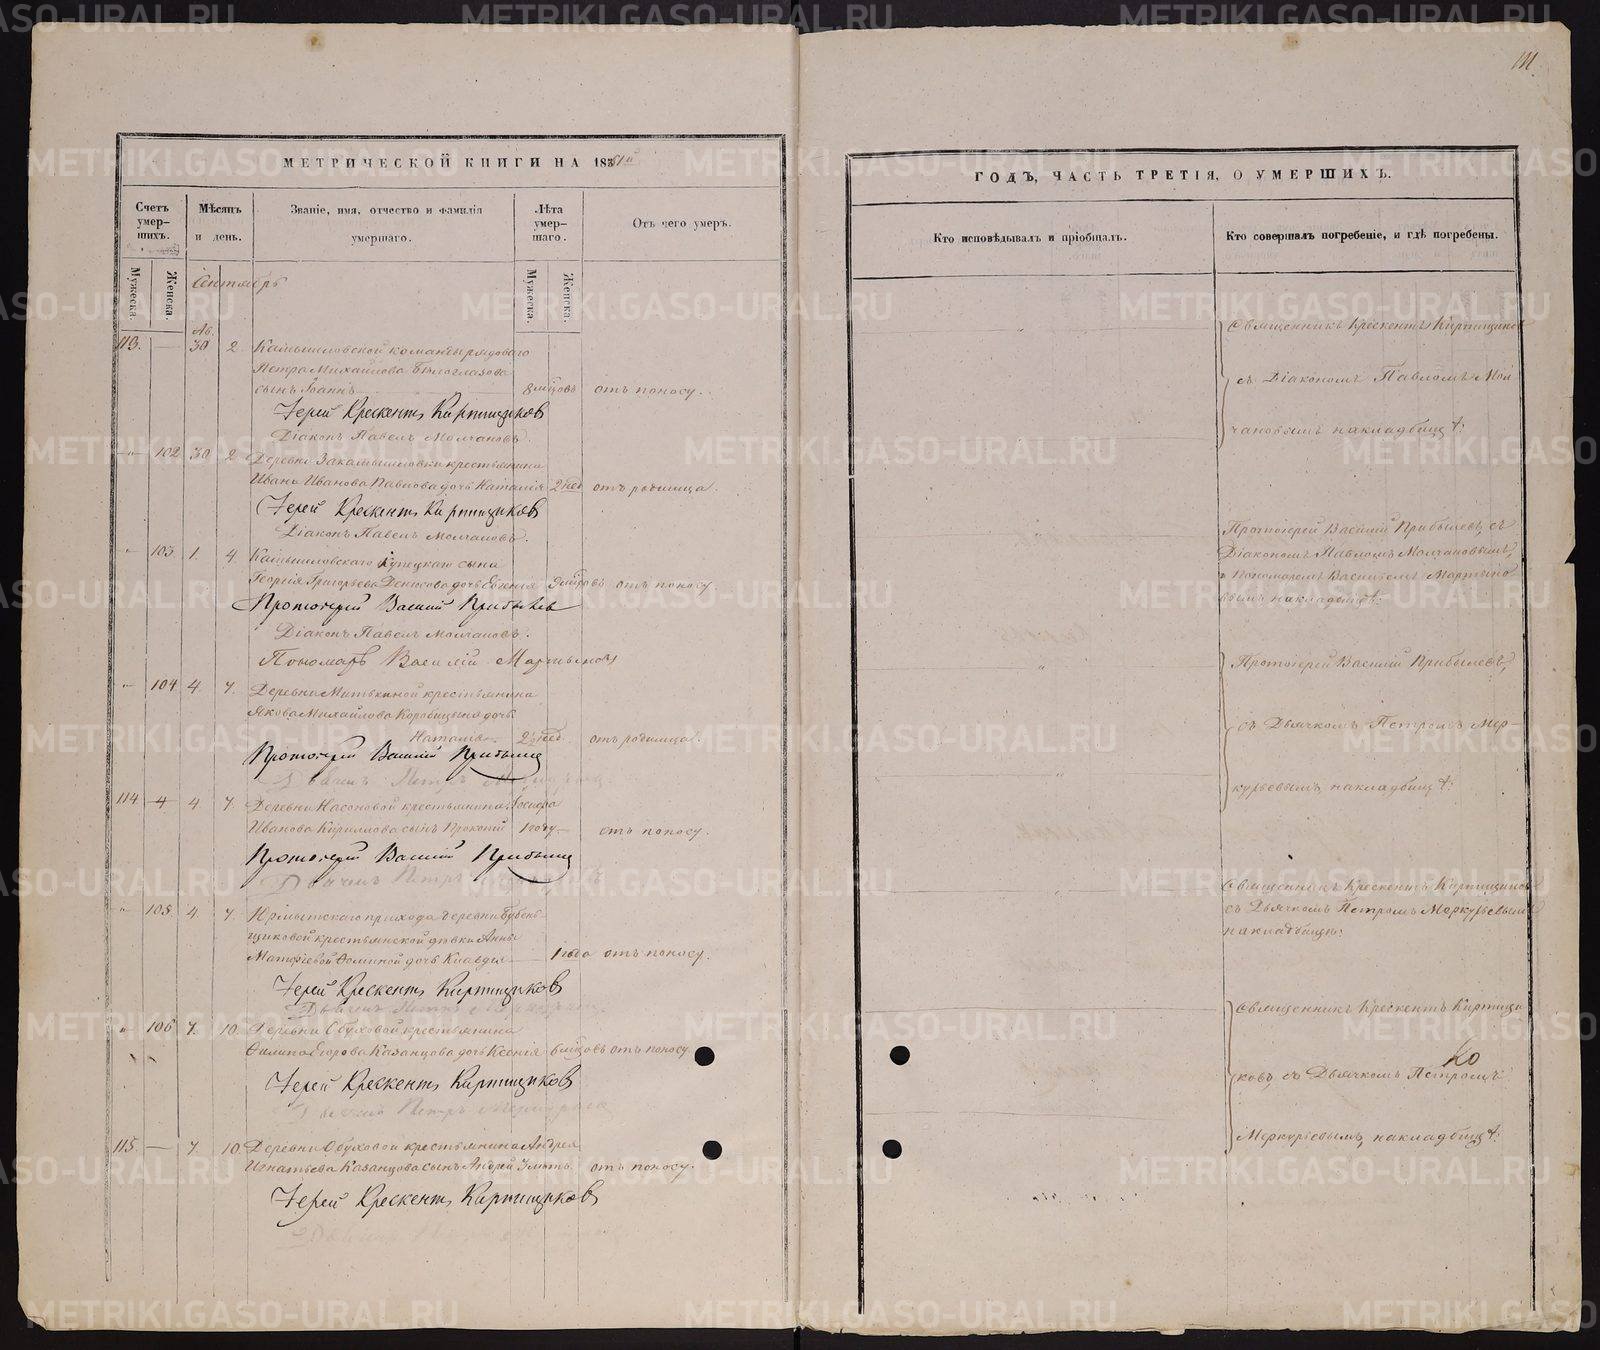 111.
МЕТРИЧЕСКОЙ КНИГИ НА 1861й
ГОДЪ, ЧАСТЬ ТРЕТІЯ, О УМЕРШИХЪ.
Счетъ умер-
шихъ.
Мѣсяцъ
и день.
Званіе, имя, отчество и фамилія
умершаго.
Лѣта
умер-
шаго.
Отъ чего умеръ.
Кто исповѣдывалъ и пріобщалъ.
Кто совершалъ погребеніе, и гдѣ погребены.
Мужеска.
Женска.
Мужеска.
Женска.
Сентябрь
Ав.
113. — 30 2. Камышловской команды рядоваго
Петра Михайлова Бѣлоглазова
сынъ Іоаннъ 8 мцовъ отъ поносу.
Іерей Крескентъ Кирпищиковъ
Діаконъ Павелъ Молчановъ.
Священникъ Крескентъ Кирпищиков
съ Діакономъ Павломъ Мол
чановымъ на кладбищѣ
" 102 30 2 Деревни Закамышловки крестьянина
Ивана Иванова Павлова дочь Наталія 2 нед отъ родимца.
Іерей Крескентъ Кирпищиковъ
Діаконъ Павелъ Молчановъ.
" 103 1. 4. Камышловскаго купецкаго сына
Георгія Григорьева Денисова дочь Евгенія 9 мцовъ отъ поносу.
Протоіерей Василій Прибылев
Діаконъ Павелъ Молчановъ.
Пономарь Василій Мартыновъ
Протоіерей Василій Прибылевъ, съ
Діакономъ Павломъ Молчановымъ,
и Пономаремъ Васильемъ Мартыно
вымъ на кладбищѣ.
" 104 4. 7. Деревни Митькиной крестьянина
Якова Михайлова Коробицына дочь
Наталія 2½ нед. отъ родимца.
Протоіерей Василій Прибылев
Дьячекъ Петръ
Протоіерей Василій Прибылевъ,
съ Дьячкомъ Петромъ Мер-
курьевымъ, на кладбищѣ
114 4 4 7. Деревни Насоновой крестьянина
Иванова Кириллова сынъ Прокопій 1 году отъ поносу.
Протоіерей Василій Прибылев
Дьячекъ Петръ
" 105 4. 7. прихода деревни
щиковой крестьянской дѣвки Анны
Матфіевой Ѳоминой дочь Клавдія 1 года отъ поносу.
Іерей Крескентъ Кирпищиковъ
Дьячекъ Петръ
Священникъ Крескентъ Кирпищиков
съ Дьячкомъ Петромъ Меркурьевым
на кладбищѣ:
" 106 7. 10. Деревни Обуховой крестьянина
Филипа Егорова Казанцова дочь Ксенія 6 мцовъ отъ поносу
Іерей Крескентъ Кирпищиковъ
Дьячекъ Петръ
Священникъ Крескентъ Кирпищи
ковъ, съ Дьячкомъ Петромъ
Меркурьевымъ, на кладбищѣ.
115. — 7. 10. Деревни Обуховой крестьянина Андрея
Игнатьева Казанцова сынъ Андрей отъ поносу.
Іерей Крескентъ Кирпищиковъ
METRIKI.GASO-URAL.RU